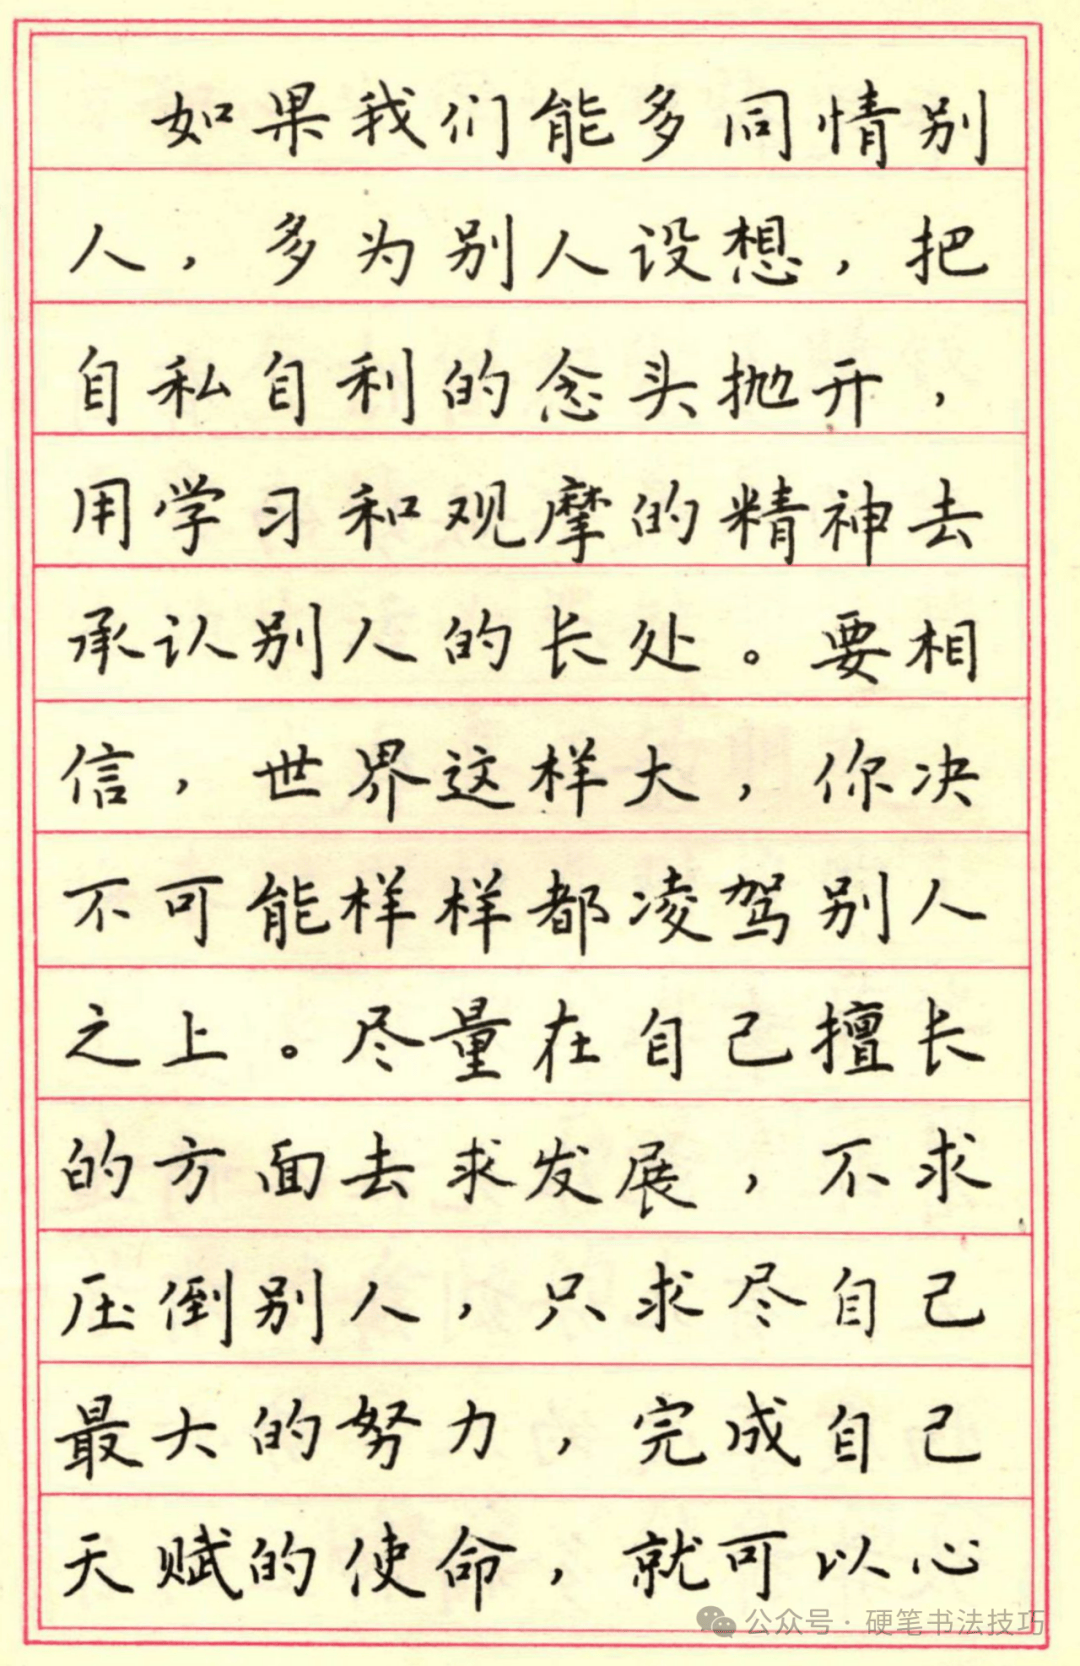 如果我们能多同情别
人，多为别人设想，把
自私自利的念头抛开，
用学习和观摩的精神去
承认别人的长处。要相
信，世界这样大，你决
不可能样样都凌驾别人
之上。尽量在自己擅长
的方面去求发展，不求
压倒别人，只求尽自己
最大的努力，完成自己
天赋的使命，就可以心
公众号·硬笔书法技巧